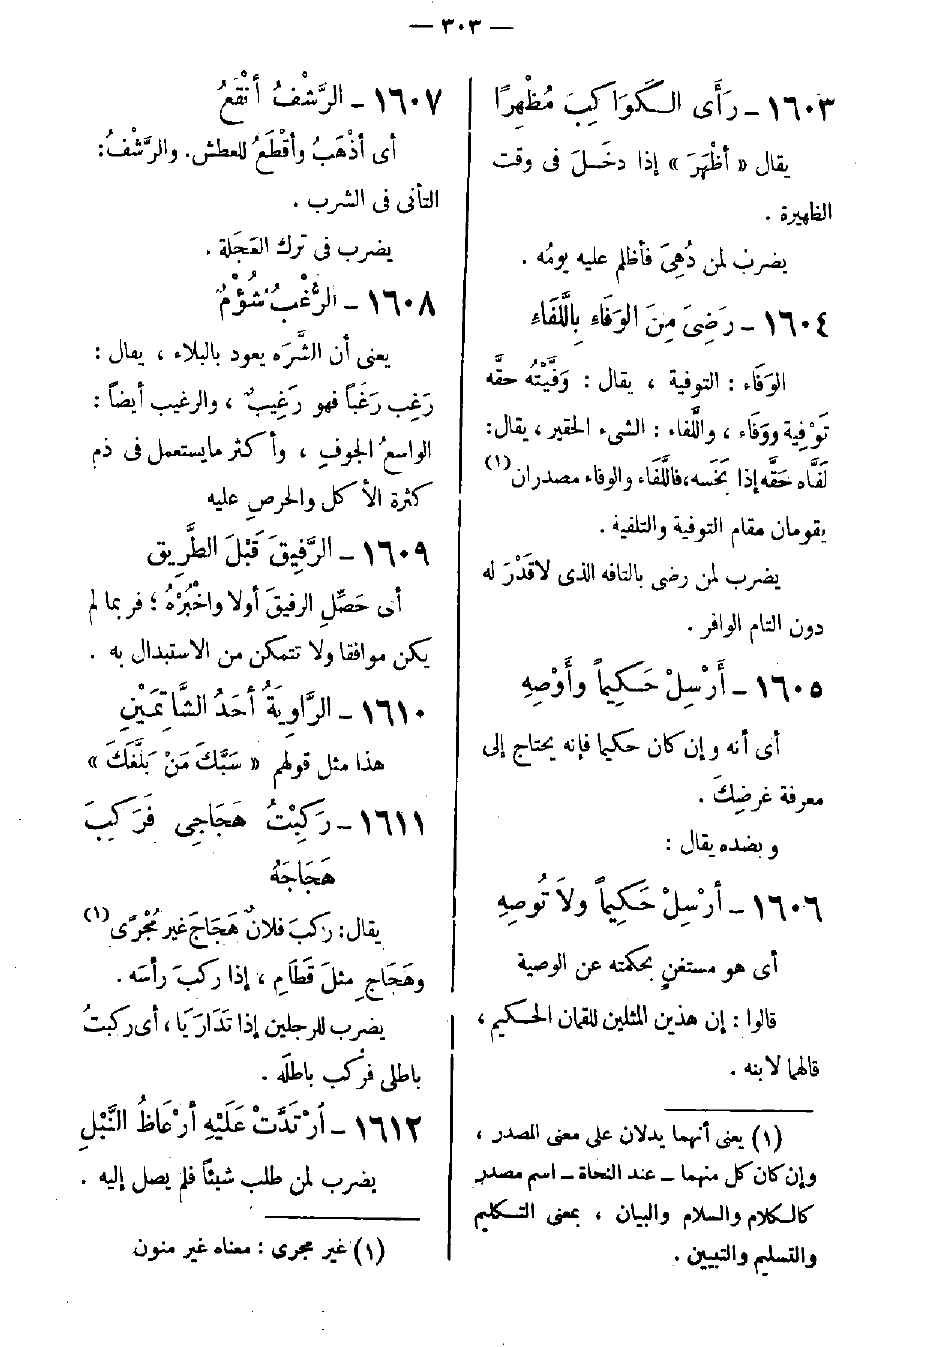 — ٣٠٣ —
١٦٠٣ — رَأَى الكَوَاكِبَ مُظْهِرًا
يقال « أظْهَرَ » إذا دخَلَ فى وقت
الظهيرة .
يضرب لمن دُهِىَ فأظلم عليه يومُه .
١٦٠٤ — رَضِىَ مِنَ الوَفَاءِ بِاللَّفَاءِ
الوَفَاء : التوفية ، يقال : وَفَّيْتُه حقَّه
تَوْفِية ووَفَاء ، واللَّفاء : الشىء الحقير ، يقال :
لَفَّاه حَقَّه إذا بَخَسه، فاللَّفَاء والوفاء مصدران (١)
يقومان مقام التوفية والتلفية .
يضرب لمن رضى بالتافه الذى لاقَدْرَ له
دون التام الوافر .
١٦٠٥ — أَرْسِلْ حَكِيماً وأَوْصِهِ
أى أنه وإن كان حكيما فإنه يحتاج إلى
معرفة غرضِكَ .
وبضده يقال :
١٦٠٦ — أرْسِلْ حَكِيماً ولاَ تُوصِهِ
أى هو مستغنٍ بحكمته عن الوصية
قالوا : إن هذين المثلين للقمان الحكيم ،
قالهما لابنه .
(١) يعنى أنهما يدلان على معنى المصدر ،
وإن كان كل منهما — عند النحاة — اسم مصدر
كالكلام والسلام والبيان ، بمعنى التكليم
والتسليم والتبيين .
١٦٠٧ — الرَّشْفُ أنْقَعُ
أى أذْهَبُ وأقْطَعُ للعطش. والرَّشْفُ:
التأنى فى الشرب .
يضرب فى ترك العَجَلة .
١٦٠٨ — الرُّغْبُ شُؤْمٌ
يعنى أن الشَّرَه يعود بالبلاء ، يقال :
رَغِب رَغَباً فهو رَغِيبٌ ، والرغيب أيضاً :
الواسعُ الجوفِ ، وأكثر مايستعمل فى ذم
كثرة الأكل والحرصِ عليه
١٦٠٩ — الرَّفِيقَ قَبْلَ الطَّرِيقِ
أى حَصِّلِ الرفيقَ أولا واخْبُرْهُ ؛ فربما لم
يكن موافقا ولا تتمكن من الاستبدال به .
١٦١٠ — الرَّاوِيَةُ أحَدُ الشَّاتِمَيْنِ
هذا مثل قولهم « سَبَّكَ مَنْ بَلَّغَكَ »
١٦١١ — رَكِبْتُ هَجَاجِى فَرَكِبَ
هَجَاجَهُ
يقال: رَكبَ فلانٌ هَجَاجَ غير مُجْرًى (١)
وهَجَاجِ مثلَ قَطَامِ ، إذا ركبَ رأسَه .
يضرب للرجلين إذا تَدَارَيَا ، أى ركبتُ
باطلى فركب باطلَه .
١٦١٢ — أرْتَدَّتْ عَلَيْهِ أرْعَاظُ النَّبْلِ
يضرب لمن طلب شيئاً فلم يصل إليه .
(١) غير مجرى : معناه غير منون